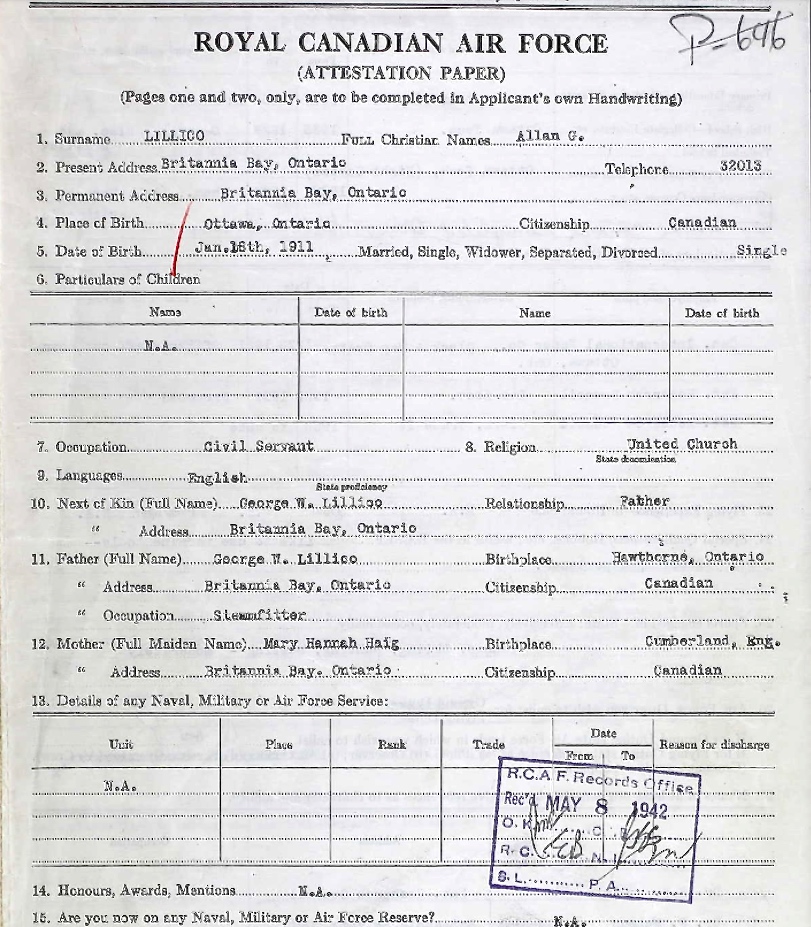 P-696
ROYAL CANADIAN AIR FORCE
(ATTESTATION PAPER)
(Pages one and two, only, are to be completed in Applicant's own Handwriting)
1. Surname LILLICO Full Christian Names Allan G.
2. Present Address Britannia Bay, Ontario Telephone 32013
3. Permanent Address Britannia Bay, Ontario
4. Place of Birth Ottawa, Ontario Citizenship Canadian
5. Date of Birth Jan. 1911 Married, Single, Widower, Separated, Divorced Single
6. Particulars of Children
Name Date of birth Name Date of birth
N.A.
7. Occupation Civil Servant 8. Religion United Church
State denomination
9. Languages English
State proficiency
10. Next of Kin (Full Name) George W. Lillico Relationship Father
" Address Britannia Bay, Ontario
11. Father (Full Name) George W. Lillico Birthplace Hawthorne, Ontario
" Address Britannia Bay, Ontario Citizenship Canadian
" Occupation Steamfitter
12. Mother (Full Maiden Name) Mary Hannah Haig Birthplace Cumberland, Eng.
" Address Britannia Bay, Ontario Citizenship Canadian
13. Details of any Naval, Military or Air Force Service:
Unit Place Rank Trade Date Reason for discharge
From To
N.A.
R.C.A.F. Records Office
Rec'd MAY 8 1942
O.K. C.
R.C. N.
S.L. P.A.
14. Honours, Awards, Mentions N.A.
15. Are you now on any Naval, Military or Air Force Reserve? N.A.